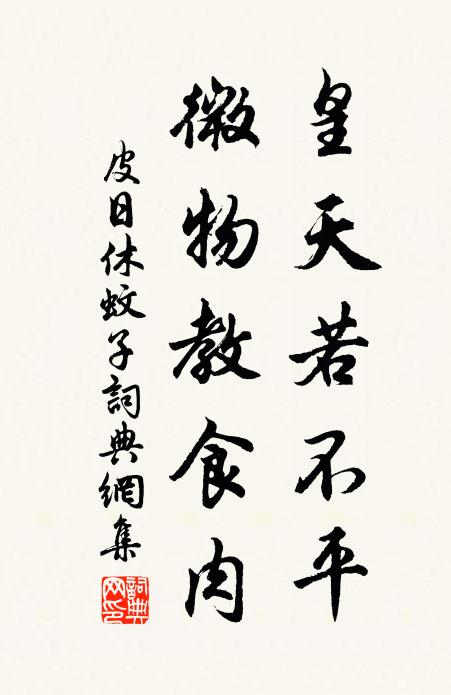 皇天若不平
微物教食肉
皮日休蚊子詞典網集
詞典网印